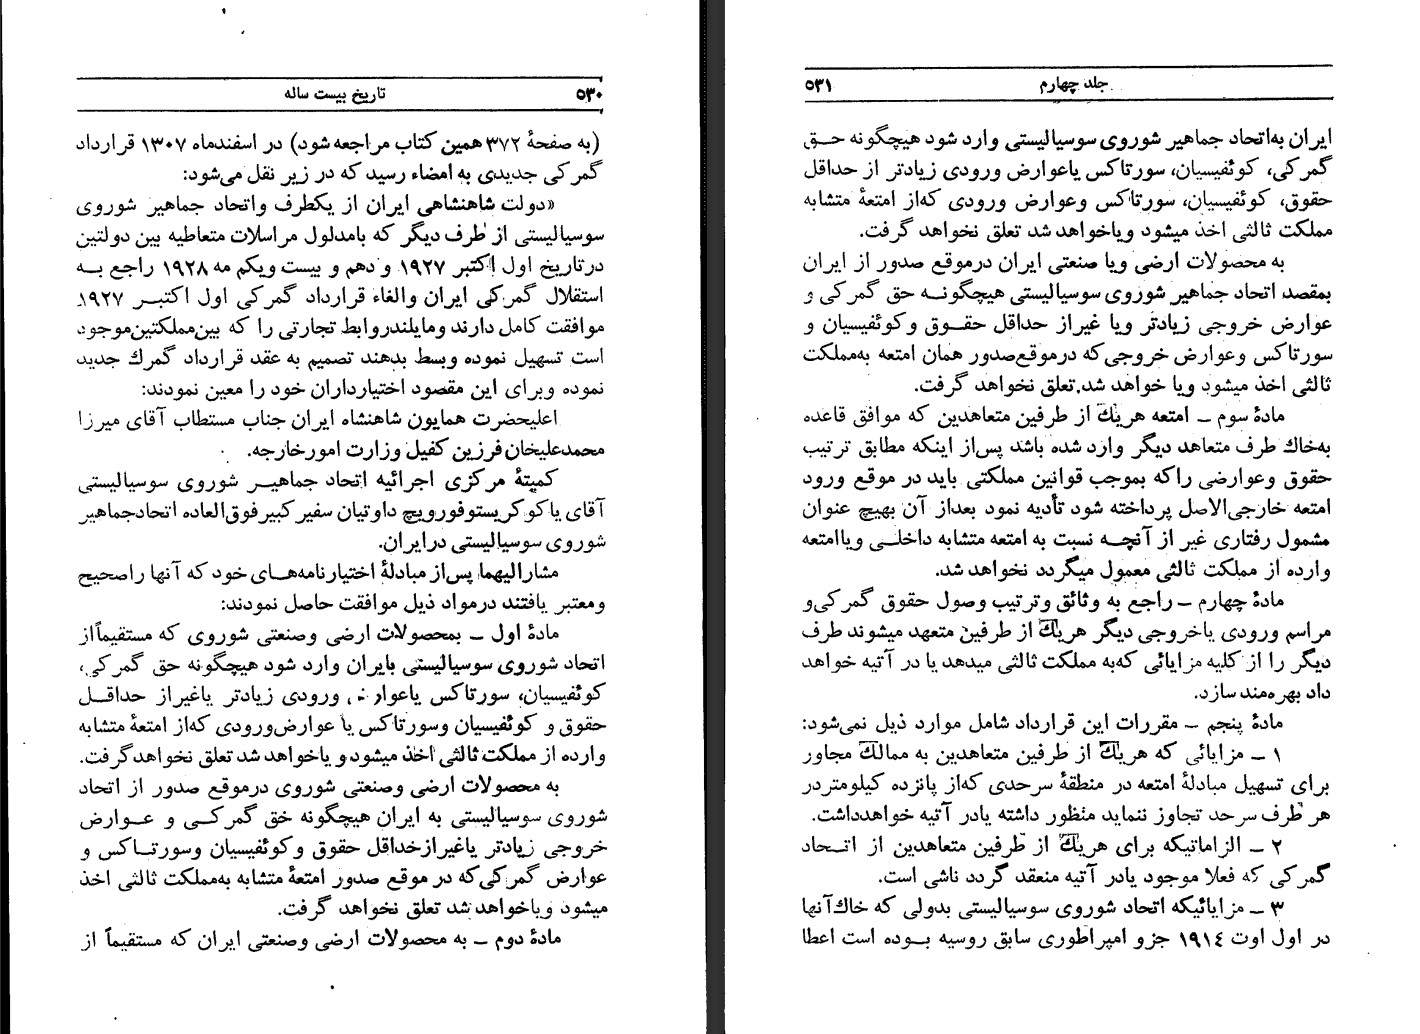 ۵۳۰ تاریخ بیست ساله
(به صفحهٔ ۳۷۲ همین کتاب مراجعه شود) در اسفندماه ۱۳۰۷ قرارداد
گمرکی جدیدی به امضاء رسید که در زیر نقل می‌شود:
«دولت شاهنشاهی ایران از یکطرف واتحاد جماهیر شوروی
سوسیالیستی از طرف دیگر که بامدلول مراسلات متعاطیه بین دولتین
درتاریخ اول اکتبر ۱۹۲۷ و دهم و بیست ویکم مه ۱۹۲۸ راجع به
استقلال گمرکی ایران والغاء قرارداد گمرکی اول اکتبر ۱۹۲۷
موافقت کامل دارند ومایلندروابط تجارتی را که بین‌مملکتین‌موجود
است تسهیل نموده وبسط بدهند تصمیم به عقد قرارداد گمرك جدید
نموده وبرای این مقصود اختیارداران خود را معین نمودند:
اعلیحضرت همایون شاهنشاه ایران جناب مستطاب آقای میرزا
محمدعلیخان فرزین کفیل وزارت امورخارجه.
کمیتهٔ مرکزی اجرائیه اتحاد جماهیر شوروی سوسیالیستی
آقای یاکوکریستوفورویچ داوتیان سفیر کبیرفوق‌العاده اتحادجماهیر
شوروی سوسیالیستی درایران.
مشارالیهما پس‌از مبادلهٔ اختیارنامه‌های خود که آنها راصحیح
ومعتبر یافتند درمواد ذیل موافقت حاصل نمودند:
مادهٔ اول ـ بمحصولات ارضی وصنعتی شوروی که مستقیماً از
اتحاد شوروی سوسیالیستی بایران وارد شود هیچگونه حق گمرکی،
کوئفیسیان، سورتاکس یاعوارض ورودی زیادتر یاغیراز حداقل
حقوق و کوئفیسیان وسورتاکس یا عوارض‌ورودی که‌از امتعهٔ متشابه
وارده از مملکت ثالثی اخذ میشود و یاخواهد شد تعلق نخواهدگرفت.
به محصولات ارضی وصنعتی شوروی درموقع صدور از اتحاد
شوروی سوسیالیستی به ایران هیچگونه حق گمرکی و عوارض
خروجی زیادتر یاغیرازحداقل حقوق وکوئفیسیان وسورتاکس و
عوارض گمرکی‌که در موقع صدور امتعهٔ متشابه به‌مملکت ثالثی اخذ
میشود ویاخواهد شد تعلق نخواهد گرفت.
مادهٔ دوم ـ به محصولات ارضی وصنعتی ایران که مستقیماً از
جلد چهارم ۵۳۱
ایران به‌اتحاد جماهیر شوروی سوسیالیستی وارد شود هیچگونه حق
گمرکی، کوئفیسیان، سورتاکس یاعوارض ورودی زیادتر از حداقل
حقوق، کوئفیسیان، سورتاکس وعوارض ورودی که‌از امتعهٔ متشابه
مملکت ثالثی اخذ میشود ویاخواهد شد تعلق نخواهد گرفت.
به محصولات ارضی ویا صنعتی ایران درموقع صدور از ایران
بمقصد اتحاد جماهیر شوروی سوسیالیستی هیچگونه حق گمرکی و
عوارض خروجی زیادتر ویا غیراز حداقل حقوق وکوئفیسیان و
سورتاکس وعوارض خروجی‌که درموقع‌صدور همان امتعه به‌مملکت
ثالثی اخذ میشود ویا خواهد شد تعلق نخواهد گرفت.
مادهٔ سوم ـ امتعه هریك از طرفین متعاهدین که موافق قاعده
به‌خاك طرف متعاهد دیگر وارد شده باشد پس‌از اینکه مطابق ترتیب
حقوق وعوارضی راکه بموجب قوانین مملکتی باید در موقع ورود
امتعه خارجی‌الاصل پرداخته شود تأدیه نمود بعداز آن بهیچ عنوان
مشمول رفتاری غیر از آنچه نسبت به امتعه متشابه داخلی ویاامتعه
وارده از مملکت ثالثی معمول میگردد نخواهد شد.
مادهٔ چهارم ـ راجع به وثائق وترتیب وصول حقوق گمرکی‌و
مراسم ورودی یاخروجی دیگر هریك از طرفین متعهد میشوند طرف
دیگر را از کلیه مزایائی که‌به مملکت ثالثی میدهد یا در آتیه خواهد
داد بهره‌مند سازد.
مادهٔ پنجم ـ مقررات این قرارداد شامل موارد ذیل نمی‌شود:
۱ ـ مزایائی که هریك از طرفین متعاهدین به ممالك مجاور
برای تسهیل مبادلهٔ امتعه در منطقهٔ سرحدی که‌از پانزده کیلومتردر
هر طرف سرحد تجاوز ننماید منظور داشته یادر آتیه خواهدداشت.
۲ ـ الزاماتیکه برای هریك از طرفین متعاهدین از اتحاد
گمرکی که فعلا موجود یادر آتیه منعقد گردد ناشی است.
۳ ـ مزایائیکه اتحاد شوروی سوسیالیستی بدولی که خاك‌آنها
در اول اوت ۱۹۱٤ جزو امپراطوری سابق روسیه بوده است اعطا